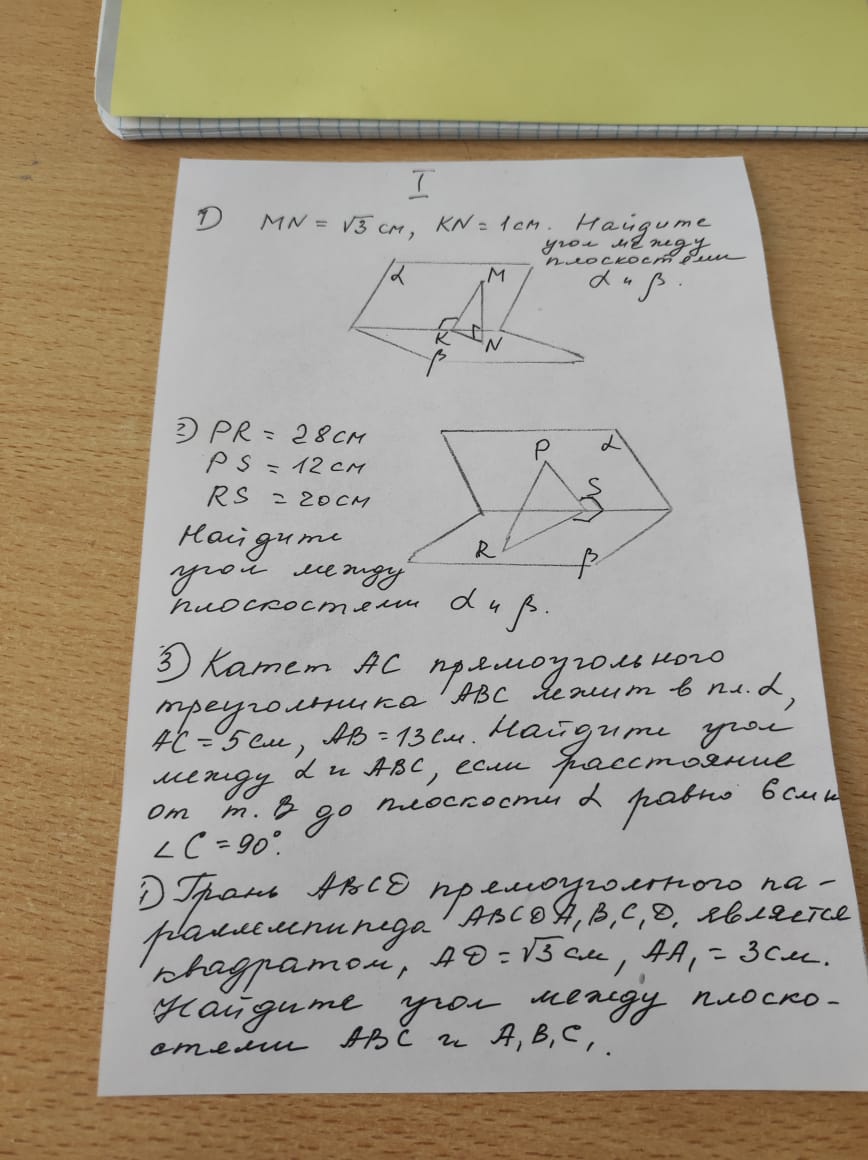 I
1) MN = √3 см, KN = 1 см. Найдите
угол между
плоскостями
α и β.
α
M
K
N
β
2) PR = 28 см
PS = 12 см
RS = 20 см
Найдите
угол между
плоскостями α и β.
P
α
S
R
β
3) Катет AC прямоугольного
треугольника ABC лежит в пл. α,
AC = 5 см, AB = 13 см. Найдите угол
между α и ABC, если расстояние
от т. B до плоскости α равно 6 см и
∠C = 90°.
1) Грань ABCD прямоугольного па-
раллелпипеда ABCDA₁B₁C₁D₁ является
квадратом, AD = √3 см, AA₁ = 3 см.
Найдите угол между плоско-
стями ABC и A₁B₁C₁.